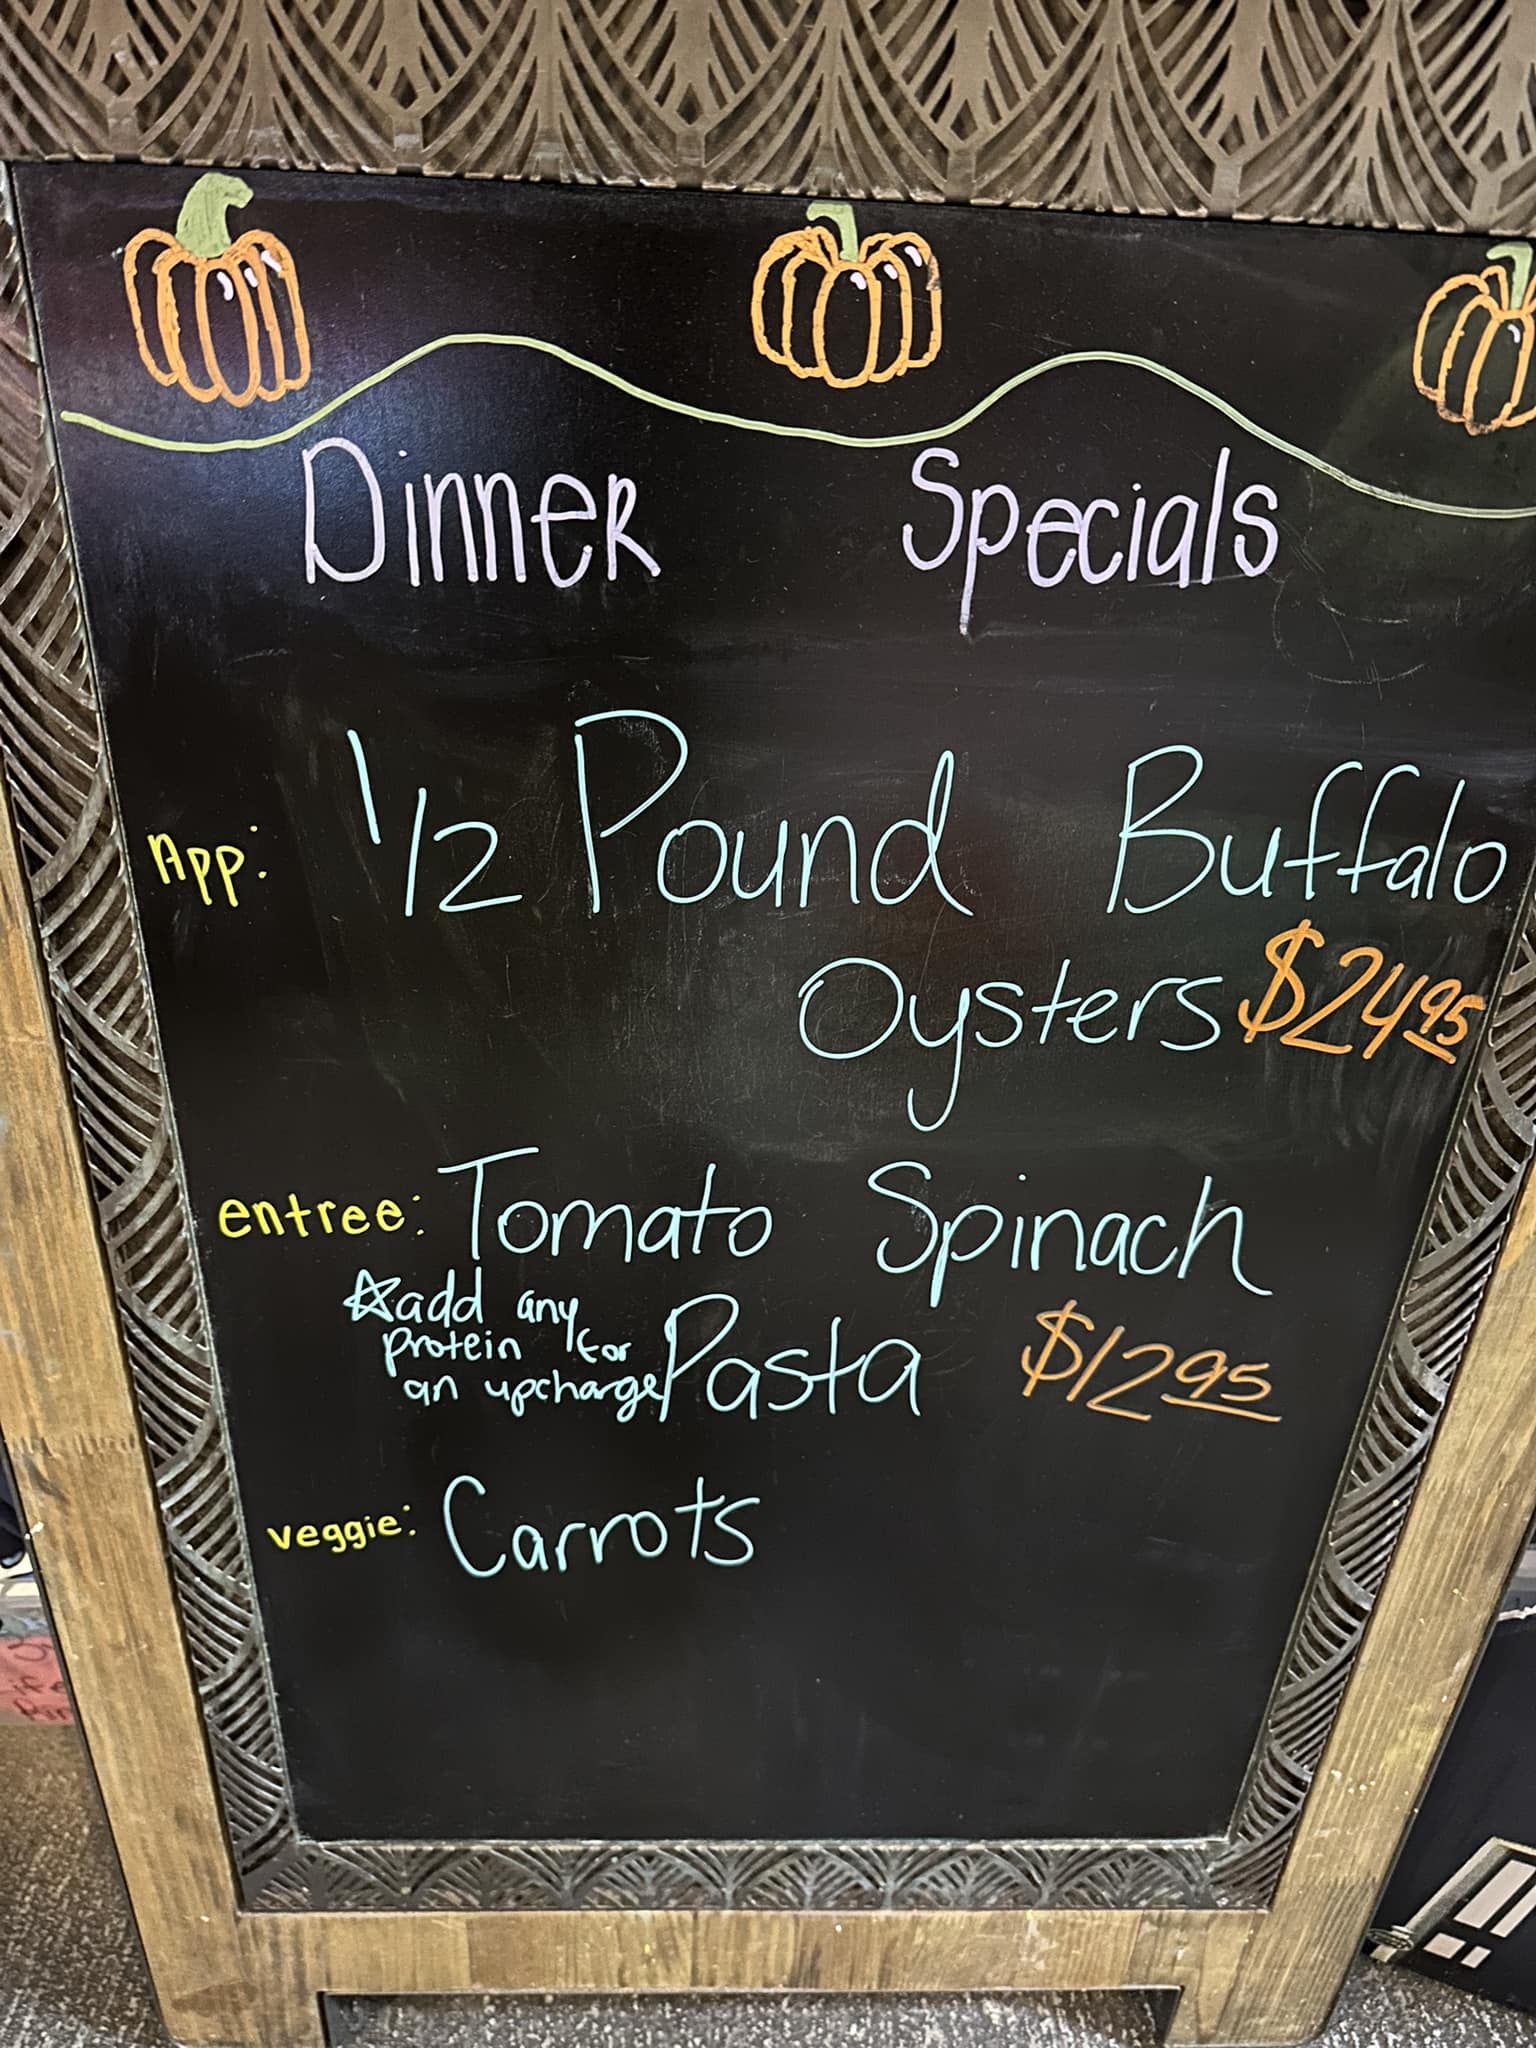 Dinner Specials
App: 1/2 Pound Buffalo
Oysters $24.95
entree: Tomato Spinach
Pasta $12.95
☆add any
protein for
an upcharge
veggie: Carrots